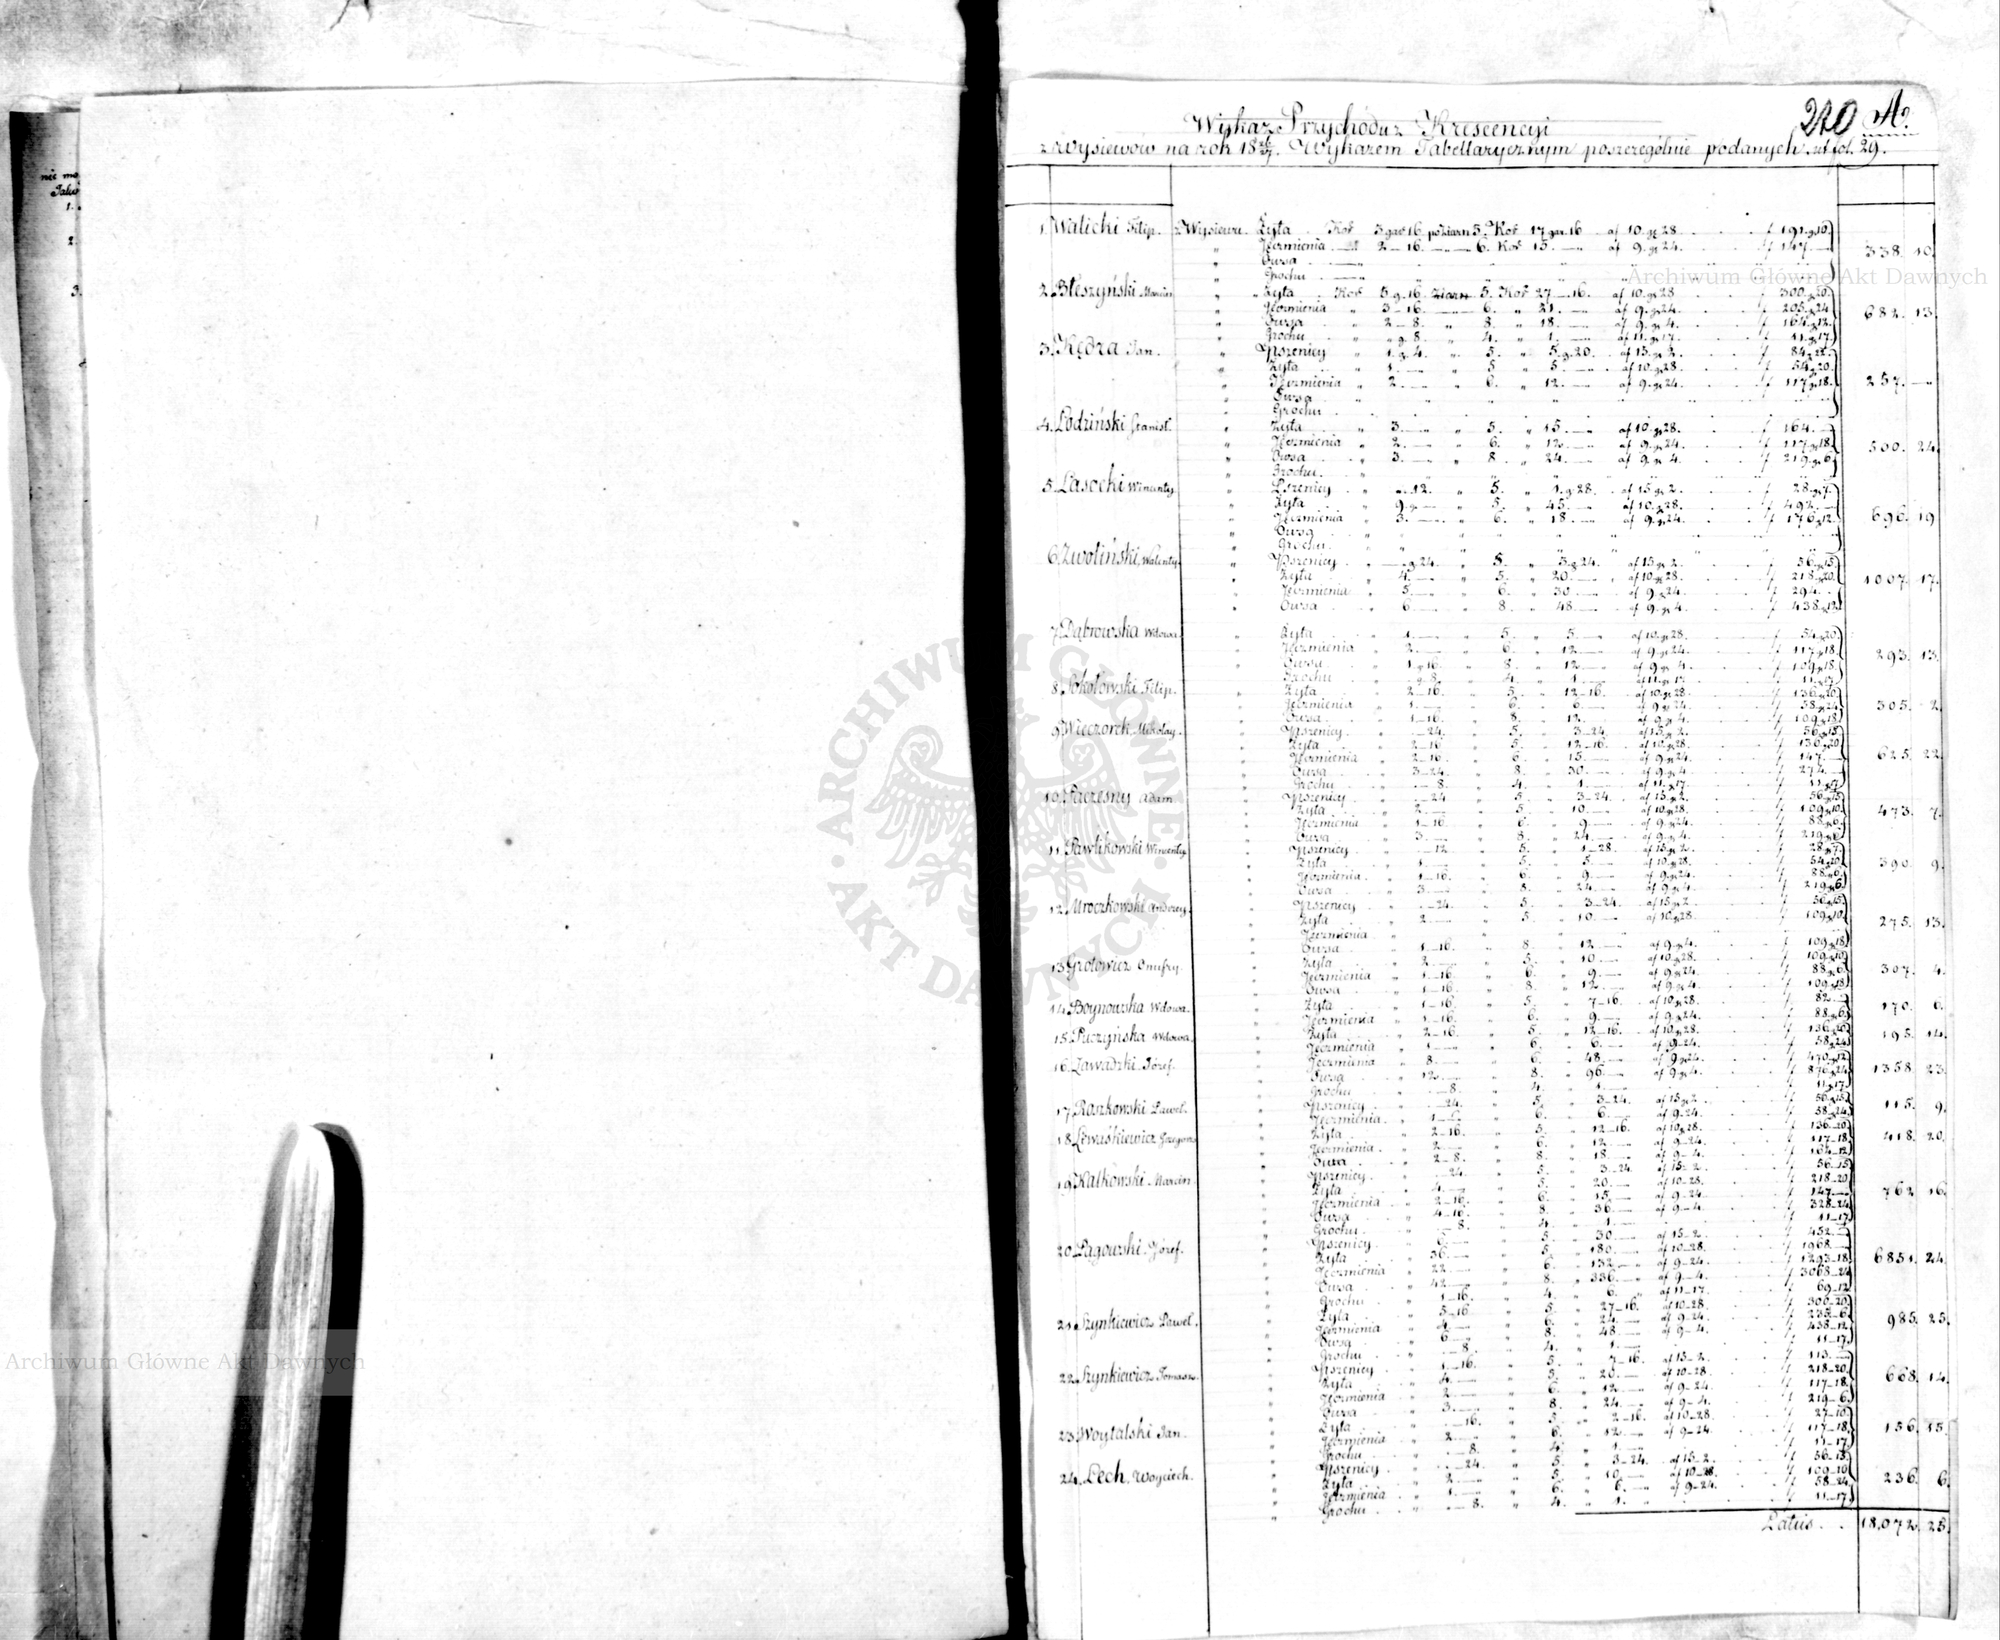 nie mo
1.
2.
3.
220 A.
Wykaz Przychodu z Krescencyi
z wysiewów na rok 18 26/27. Wykazem Tabellarycznym poszczególnie podanych ut fol. 29.
1. Walicki Filip. z Wysiewu. Żyta Koř 3 gar 16 poziarn 5. Koř 17 gar. 16 af 10. gr 28 f 191. g 10.
Jęczmienia 2—16. 6. Koř 15.— af 9. gr 24. f 147.— 338. 10.
Owsa
Grochu
2. Błeszyński Marcin Żyta Koř 5 g. 16. ziarn 5. Koř 27—16. af 10. gr 28 f 300. g 20.
Jęczmienia 3—16. 6. 21.— af 9. gr 24. f 205. g 24.
Owsa 2—8. 8. 18.— af 9. gr 4. f 164. g 12. 682. 13.
Grochu g. 8. 4. 1.— af 11. gr 17. f 11. g 17.
3. Kędra Jan. Pszenicy 1. g. 4. 5. 5. g. 20. af 15. gr 2. f 84. g 22.
Żyta 1.— 5. 5.— af 10. gr 28. f 54. g 20.
Jęczmienia 2.— 6. 12.— af 9. gr 24. f 117. g 18. 257.—
Owsa
Grochu
4. Łodziński Stanisł. Żyta 3.— 5. 15.— af 10. gr 28. f 164.—
Jęczmienia 2.— 6. 12.— af 9. gr 24. f 117. g 18. 500. 24.
Owsa 3.— 8. 24.— af 9. gr 4. f 219. g 6.
Grochu.
5. Lasocki Wincenty Pszenicy 12. 5. 1. g 28. af 15 gr 2. f 28. g 7.
Żyta 9.— 5. 45.— af 10. gr 28. f 492.—
Jęczmienia 3.— 6. 18.— af 9. gr 24. f 176. g 12. 696. 19
Owsa
Grochu.
6. Zwoliński, Walenty Pszenicy g. 24. 5. 3. g. 24. af 15 gr 2. f 56. g 15.
Żyta 4.— 5. 20.— af 10. gr 28. f 218. g 20.
Jęczmienia 5.— 6. 30.— af 9. gr 24. f 294. 1007. 17.
Owsa 6.— 8. 48.— af 9. gr 4. f 438. g 12.
7. Dąbrowska Wdowa. Żyta 1.— 5. 5.— af 10. gr 28. f 54. g 20.
Jęczmienia 2.— 6. 12.— af 9. gr 24. f 117. g 18.
Owsa 1. g 16. 8. 12.— af 9. gr 4. f 109. g 18. 293. 13.
Grochu g. 8. 4. 1.— af 11. gr 17. f 11. g 17.
8. Sokołowski Filip. Żyta 2—16. 5. 12—16. af 10. gr 28. f 136. g 20.
Jęczmienia 1.— 6. 6.— af 9. gr 24. f 58. g 24. 305. 2.
Owsa 1—16. 8. 12. af 9. gr 4. f 109. g 18.
9. Wieczorek, Mikołay. Pszenicy —24. 5. 3—24. af 15. gr 2. f 56. g 15.
Żyta 2—16 5. 12—16. af 10. gr 28. f 136. g 20.
Jęczmienia 2—16. 6. 15.— af 9. gr 24. f 147.— 625. 22
Owsa 3—24. 8. 30.— af 9. gr 4. f 274.
Grochu —8. 4. 1.— af 11. gr 17. f 11. g 17.
10. Paczesny Adam Pszenicy —24 5. 3—24. af 15. gr 2. f 56. g 15.
Żyta 2.— 5. 10.— af 10. gr 28. f 109. g 10. 473. 7.
Jęczmienia 1—16. 6. 9.— af 9. gr 24. f 88. g 6.
Owsa 3.— 8. 24.— af 9. gr 4. f 219. g 6.
11. Pawlikowski Wincenty Pszenicy —12 5. 1—28. af 15 gr 2. f 28. g 7.
Żyta 1.— 5. 5.— af 10. gr 28. f 54. g 20. 390. 9.
Jęczmienia. 1—16. 6. 9.— af 9. gr 24. f 88. g 6.
Owsa 3.— 8. 24.— af 9. gr 4. f 219. g 6.
12. Mroczkowski Andrzey. Pszenicy —24. 5. 3—24. af 15 gr 2 f 56. g 15.
Żyta 2.— 5. 10.— af 10. gr 28. f 109. g 10. 275. 13.
Jęczmienia
Owsa 1—16. 8. 12.— af 9. gr 4. f 109. g 18.
13. Grotowicz Onufry. Żyta 2.— 5. 10.— af 10. gr 28. f 109. g 10
Jęczmienia 1—16 6. 9.— af 9. gr 24. f 88. g 6. 307. 4.
Owsa 1—16. 8. 12.— af 9. gr 4. f 109. g 18
14. Boynowska Wdowa. Żyta 1—16. 5. 7—16. af 10. gr 28. f 82.— 170. 6.
Jęczmienia 1—16. 6. 9.— af 9. gr 24. f 88. g 6.
15. Puczyńska Wdowa. Żyta 2—16. 5. 12—16. af 10. gr 28. f 136. g 20. 195. 14.
Jęczmienia 1.— 6. 6.— af 9—24. f 58. g 24.
16. Zawadzki Józef. Jęczmienia 8.— 6. 48.— af 9. gr 24. f 470. g 12.
Owsa 12.— 8. 96.— af 9. gr 4. f 876. g 24. 1358. 23.
Grochu —8. 4. 1.— f 11. g 17.
17. Raszkowski Paweł. Pszenicy —24. 5. 3—24. af 15. gr 2. f 56. g 15. 115. 9.
Jęczmienia. 6. 6.— af 9—24. f 58. g 24.
18. Lewaśkiewicz Grzegorz Żyta 2—16. 5. 12—16. af 10. gr 28. f 136—20.
Jęczmienia 2.— 6. 12.— af 9—24. f 117—18. 418. 20.
Owsa 2—8. 8. 18.— af 9—4. f 164—12.
19. Kałkowski Marcin Pszenicy —24. 5. 3—24. af 15—2. f 56—15
Żyta 4.— 5. 20.— af 10—28. f 218—20
Jęczmienia 2—16. 6. 15.— af 9—24. f 147.— 762. 16.
Owsa 4—16. 8. 36.— af 9—4. f 328—24
Grochu —8. 4. 1.— f 11—17
20. Łągowski Józef. Pszenicy 6.— 5. 30.— af 15—2. f 452.—
Żyta 36.— 5. 180.— af 10—28. f 1968.—
Jęczmienia 22.— 6. 132.— af 9—24. f 1293—18. 6851. 24.
Owsa 42.— 8. 336.— af 9—4. f 3068—24
Grochu 1—16. 4. 6. af 11—17. f 69—12
21. Szynkiewicz Paweł. Żyta 5—16 5. 27—16. af 10—28. f 300—20.
Jęczmienia 4.— 6. 24.— af 9—24 f 235—6. 985. 25.
Owsa 6.— 8. 48.— af 9—4. f 438—12.
Grochu —8. 4. 1.— f 11—17.
22. Szynkiewicz Tomasz. Pszenicy 1—16. 5. 7—16. af 15—2. f 113.—
Żyta 4.— 5. 20.— af 10—28. f 218—20. 668. 14.
Jęczmienia 2.— 6. 12.— af 9—24. f 117—18.
Owsa 3.— 8. 24.— af 9—4. f 219—6.
23. Woytalski Jan. Żyta —16. 5. 2—16. af 10—28. f 27—10.
Jęczmienia 2.— 6. 12.— af 9—24. f 117—18. 156. 15.
Grochu —8. 4. 1.— f 11—17.
24. Lech, Woyciech. Pszenicy —24. 5. 3—24. af 15—2. f 56—15.
Żyta 2.— 5. 10.— af 10—28. f 109—10
Jęczmienia 1.— 6. 6.— af 9—24. f 58—24. 236. 6.
Grochu —8. 4. 1. f 11—17
Latus 18,072. 25.
Archiwum Główne Akt Dawnych
ARCHIWUM GŁÓWNE AKT DAWNYCH
Archiwum Główne Akt Dawnych